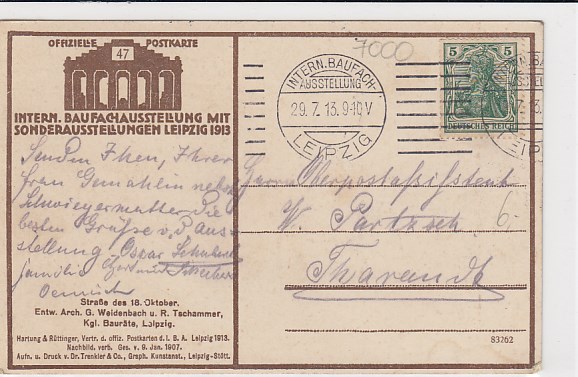 OFFIZIELLE POSTKARTE
47
INTERN. BAUFACHAUSSTELLUNG MIT
SONDERAUSSTELLUNGEN LEIPZIG 1913
Senden Ihnen, Ihrer
Frau Gemahlin nebst
Schwiegermutter die
besten Grüße v. d. Aus-
stellung. Oscar
Familie
Straße des 18. Oktober.
Entw. Arch. G. Weidenbach u. R. Tschammer,
Kgl. Bauräte, Leipzig.
Hartung & Rüttinger, Vertr. d. offiz. Postkarten d. I. B. A. Leipzig 1913.
Nachbild. verb. Ges. v. 9. Jan. 1907.
Aufn. u. Druck v. Dr. Trenkler & Co., Graph. Kunstanst., Leipzig-Stött.
7000
INTERN. BAUFACH-
AUSSTELLUNG
29. 7. 13. 9-10 V
LEIPZIG
5 5
DEUTSCHES REICH
Herrn Oberpostassistent
W. Partzsch
6.-
Tharandt
83262